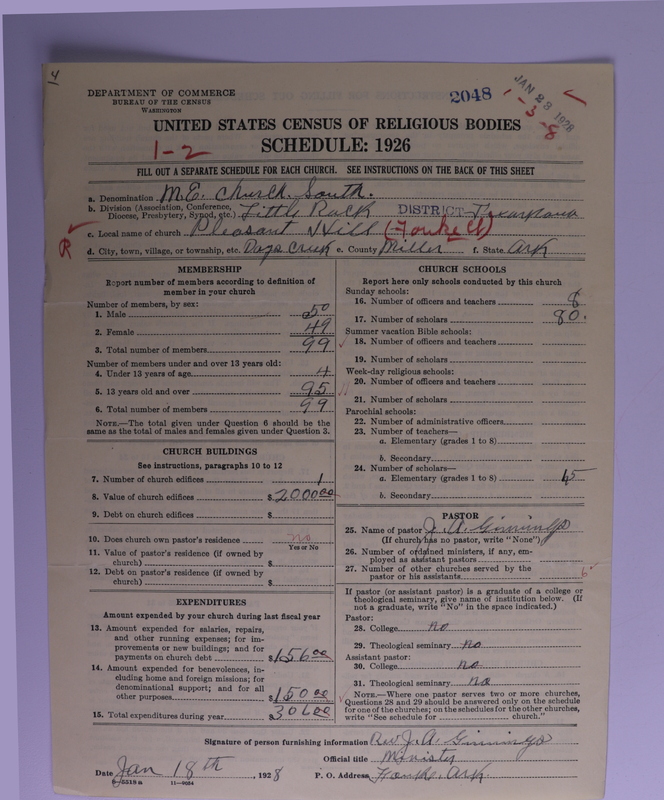 4
DEPARTMENT OF COMMERCE
BUREAU OF THE CENSUS
WASHINGTON
2048
JAN 23 1928
1-3-8
UNITED STATES CENSUS OF RELIGIOUS BODIES
SCHEDULE: 1926
1-2
FILL OUT A SEPARATE SCHEDULE FOR EACH CHURCH. SEE INSTRUCTIONS ON THE BACK OF THIS SHEET
a. Denomination M.E. Church, South.
b. Division (Association, Conference, Diocese, Presbytery, Synod, etc.) Little Rock DISTRICT Texarkana
c. Local name of church Pleasant Hill (Fouke Ct)
R
d. City, town, village, or township, etc. Days Creek e. County Miller f. State Ark
MEMBERSHIP
Report number of members according to definition of
member in your church
Number of members, by sex:
1. Male 50
2. Female 49
3. Total number of members 99
Number of members under and over 13 years old:
4. Under 13 years of age 4
5. 13 years old and over 95
6. Total number of members 99
NOTE.—The total given under Question 6 should be
same as the total of males and females given under Question 3.
CHURCH BUILDINGS
See instructions, paragraphs 10 to 12
7. Number of church edifices 1
8. Value of church edifices $ 2000 00
9. Debt on church edifices $
10. Does church own pastor's residence no
Yes or No
11. Value of pastor's residence (if owned by
church) $
12. Debt on pastor's residence (if owned by
church) $
EXPENDITURES
Amount expended by your church during last fiscal year
13. Amount expended for salaries, repairs,
and other running expenses; for im-
provements or new buildings; and for
payments on church debt $ 156 00
14. Amount expended for benevolences, in-
cluding home and foreign missions; for
denominational support; and for all
other purposes $ 150 00
15. Total expenditures during year $ 306 00
CHURCH SCHOOLS
Report here only schools conducted by this church
Sunday schools:
16. Number of officers and teachers 8
17. Number of scholars 80.
Summer vacation Bible schools:
18. Number of officers and teachers
19. Number of scholars
Week-day religious schools:
20. Number of officers and teachers
21. Number of scholars
Parochial schools:
22. Number of administrative officers
23. Number of teachers—
a. Elementary (grades 1 to 8)
b. Secondary
24. Number of scholars—
a. Elementary (grades 1 to 8) 45
b. Secondary
PASTOR
25. Name of pastor J. A. Ginnings
(If church has no pastor, write "None")
26. Number of ordained ministers, if any, em-
ployed as assistant pastors
27. Number of other churches served by the
pastor or his assistants 6
If pastor (or assistant pastor) is a graduate of a college or
theological seminary, give name of institution below. (If
not a graduate, write "No" in the space indicated.)
Pastor:
28. College no
29. Theological seminary no
Assistant pastor:
30. College no
31. Theological seminary no
NOTE.—Where one pastor serves two or more churches,
Questions 28 and 29 should be answered only on the schedule
for one of the churches; on the schedules for the other churches,
write "See schedule for church."
Signature of person furnishing information Rev J. A. Ginnings
Official title Minister
Date Jan 18th, 1928 P. O. Address Fouke, Ark.
8—5518a 11—9084